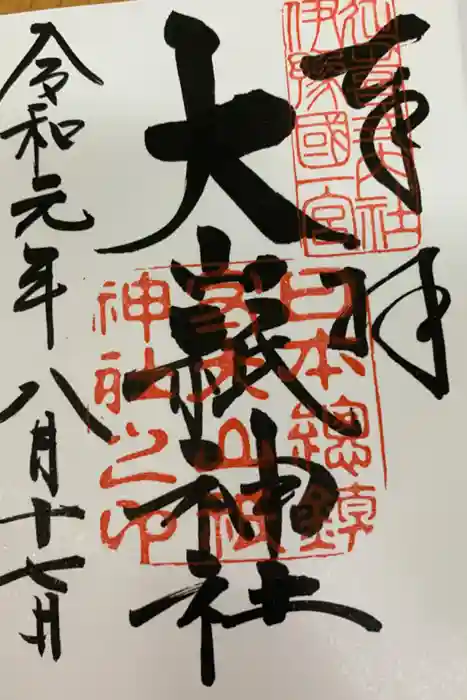 奉拝
伊豫國一宮
大山祇神社
日本總鎮
守大山祇
神社之印
令和元年八月十七日